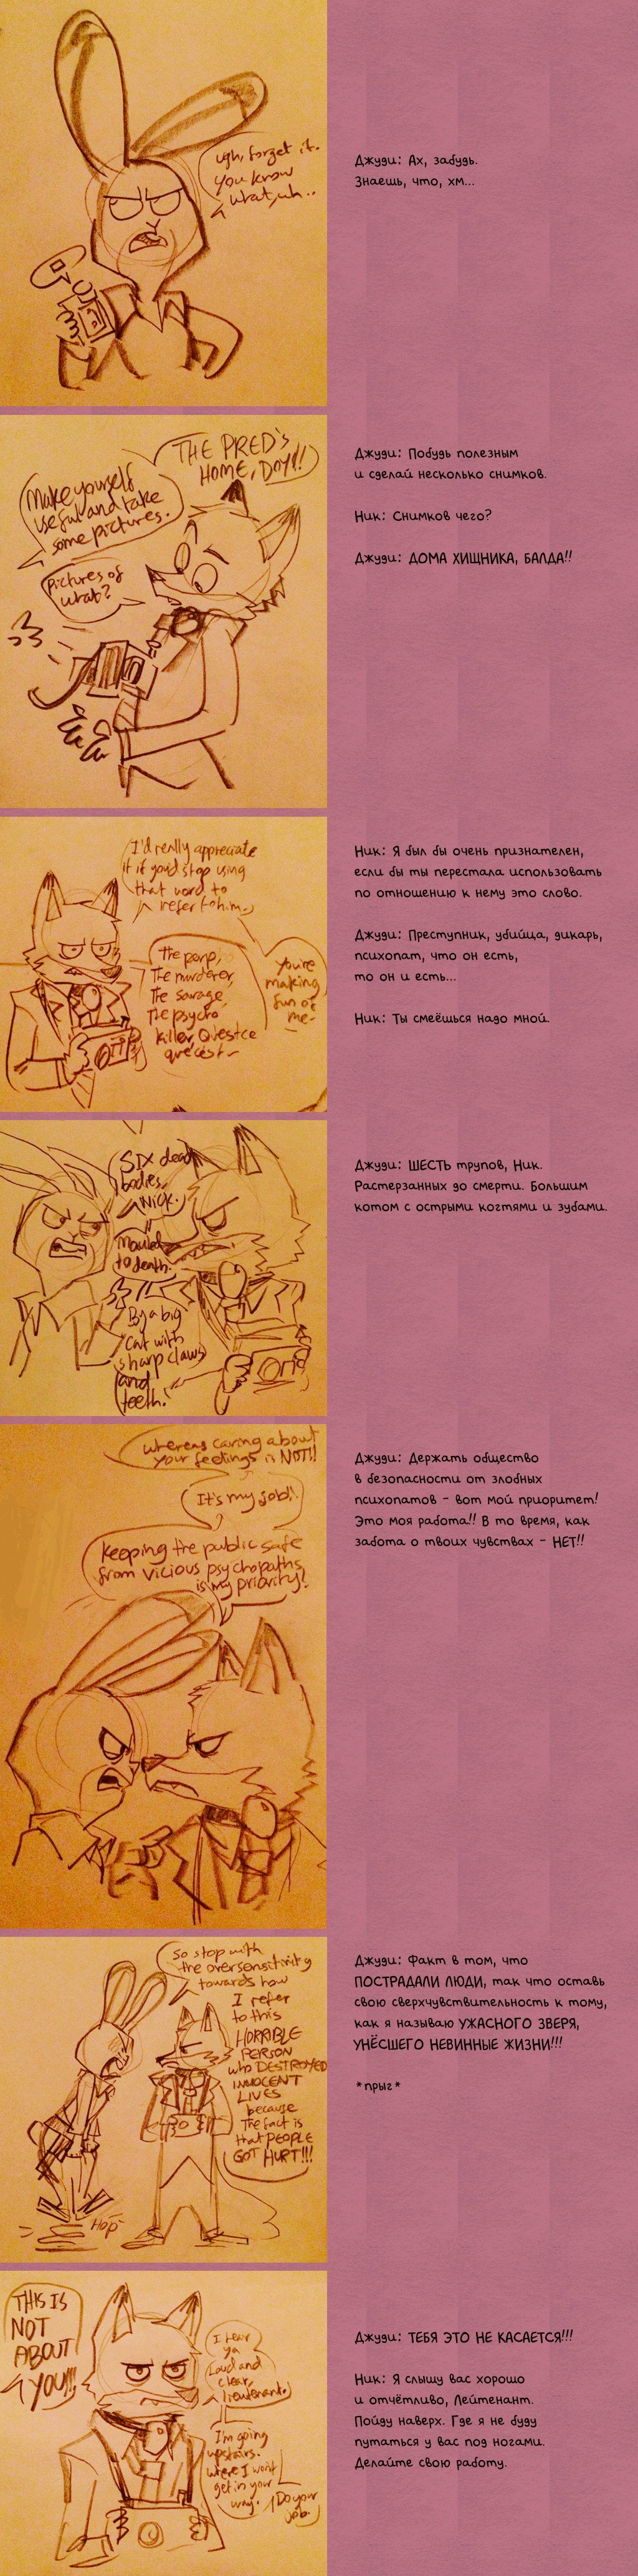 ugh, forget it.
you know
what, uh..
Джуди: Ах, забудь.
Знаешь, что, хм...
THE PRED'S
HOME, DOY!!
Make yourself
useful and take
some pictures.
Pictures of
what?
Джуди: Побудь полезным
и сделай несколько снимков.
Ник: Снимков чего?
Джуди: ДОМА ХИЩНИКА, БАЛДА!!
I'd really appreciate
it if you'd stop using
that word to
refer to him.
The perp,
The murderer,
The savage,
The psycho
killer,
You're
making
fun of
me-
Ник: Я был бы очень признателен,
если бы ты перестала использовать
по отношению к нему это слово.
Джуди: Преступник, убийца, дикарь,
психопат, что он есть,
то он и есть...
Ник: Ты смеёшься надо мной.
SIX dead
bodies,
Nick.
Mauled
to death.
By a big
cat with
sharp claws
and
teeth.
Джуди: ШЕСТЬ трупов, Ник.
Растерзанных до смерти. Большим
котом с острыми когтями и зубами.
whereas caring about
your feelings is NOT!!
It's my job!!
Keeping the public safe
from vicious psychopaths
is my priority!
Джуди: Держать общество
в безопасности от злобных
психопатов - вот мой приоритет!
Это моя работа!! В то время, как
забота о твоих чувствах - НЕТ!!
So stop with
the oversensitivity
towards how
I refer
to this
HORRIBLE
PERSON
who DESTROYED
INNOCENT
LIVES
because
The fact is
that PEOPLE
GOT HURT!!!
Hop
Джуди: Факт в том, что
ПОСТРАДАЛИ ЛЮДИ, так что оставь
свою сверхчувствительность к тому,
как я называю УЖАСНОГО ЗВЕРЯ,
УНЁСШЕГО НЕВИННЫЕ ЖИЗНИ!!!
*прыг*
THIS IS
NOT
ABOUT
YOU!!!
I hear
ya
Loud and
clear,
lieutenant.
I'm going
upstairs.
where I won't
get in your
way.
Do your
job.
Джуди: ТЕБЯ ЭТО НЕ КАСАЕТСЯ!!!
Ник: Я слышу вас хорошо
и отчётливо, Лейтенант.
Пойду наверх. Где я не буду
путаться у вас под ногами.
Делайте свою работу.